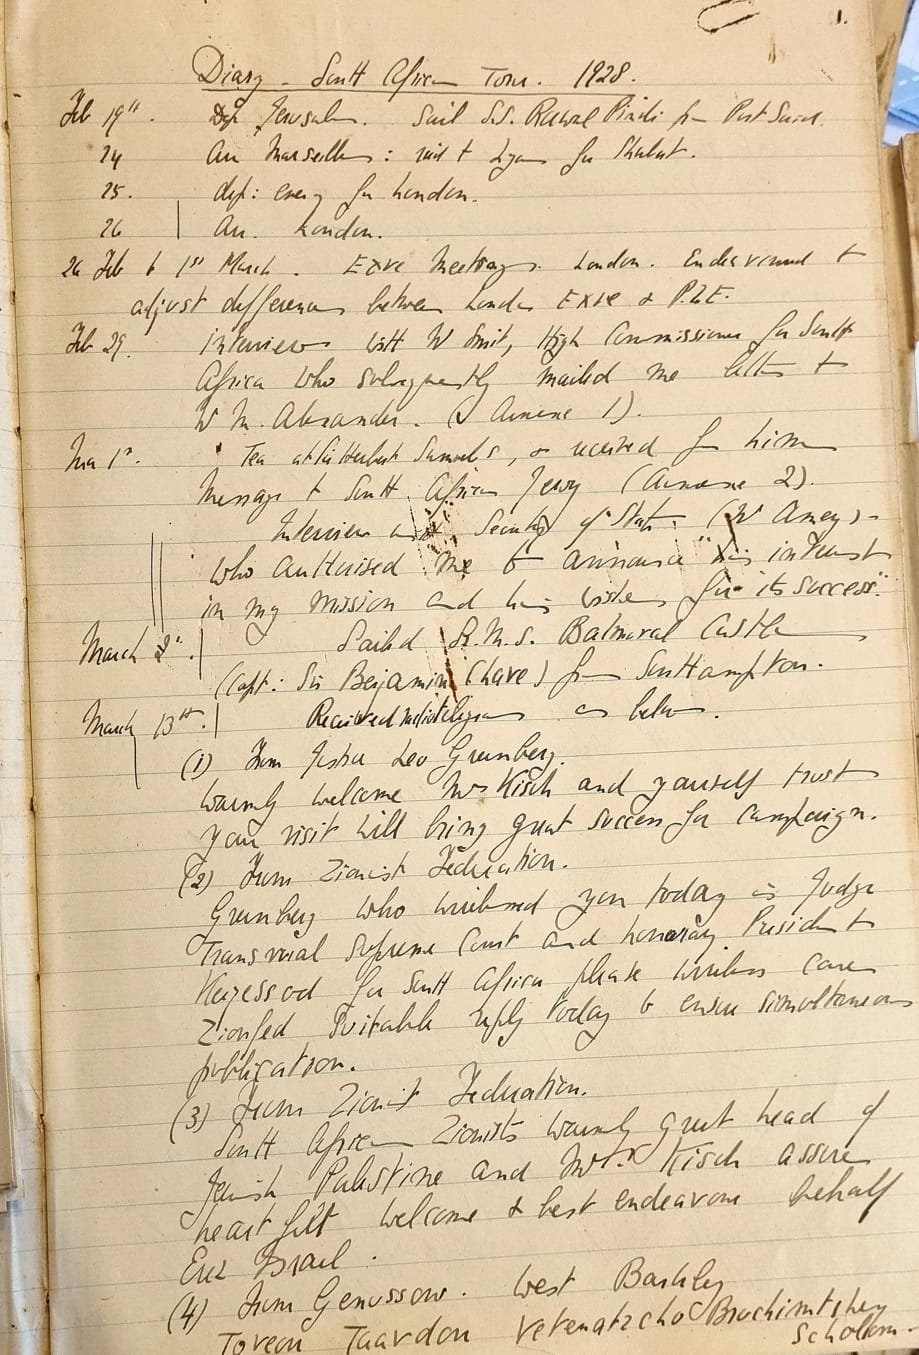 1.
Diary - South African Tour. 1928.
Feb 19th. Dep Jerusalem. Sail S.S. Rawal Pindi fr Port Said.
24 Arr Marseilles: rail to Lyon for Shabat.
25. dep: eveng for London.
26 Arr. London.
26 Feb to 1st March. Exve Meetings. London. Endeavoured to
adjust differences between London Exve & P.Z.E.
Feb 29. Interview with Mr Smit, High Commissioner for South
Africa who subsequently mailed me letter to
Mr M. Alexander. (v Annexe 1).
Mar 1st. Tea at Sir Herbert Samuel's, & received fr him
Message to South African Jewry (Annexe 2).
Interview with Secretary of State (Mr Amery) -
who authorised me to announce "his interest
in my mission and his wishes for its success".
March 2d. Sailed R.M.S. Balmoral Castle
(Capt: Sir Benjamin Chave) fr Southampton.
March 13th. Received radiotelegrams as below.
(1) From Justice Leo Greenberg.
Warmly welcome Mrs Kisch and yourself trust
your visit will bring great success for campaign.
(2) From Zionist Federation.
Greenberg who wirelessed you today is Judge
Transvaal Supreme Court and honorary President
Keyessod for South Africa please wireless care
Zionfed suitable reply today to ensure simultaneous
publication.
(3) From Zionist Federation.
South African Zionists warmly greet head of
Jewish Palestine and Mrs Kisch assure
heart felt welcome & best endeavour behalf
Erez Israel.
(4) From Genussow. West Barkley
Toveon Taardon Veyenatzcho Bruchimtihey
Scholom -